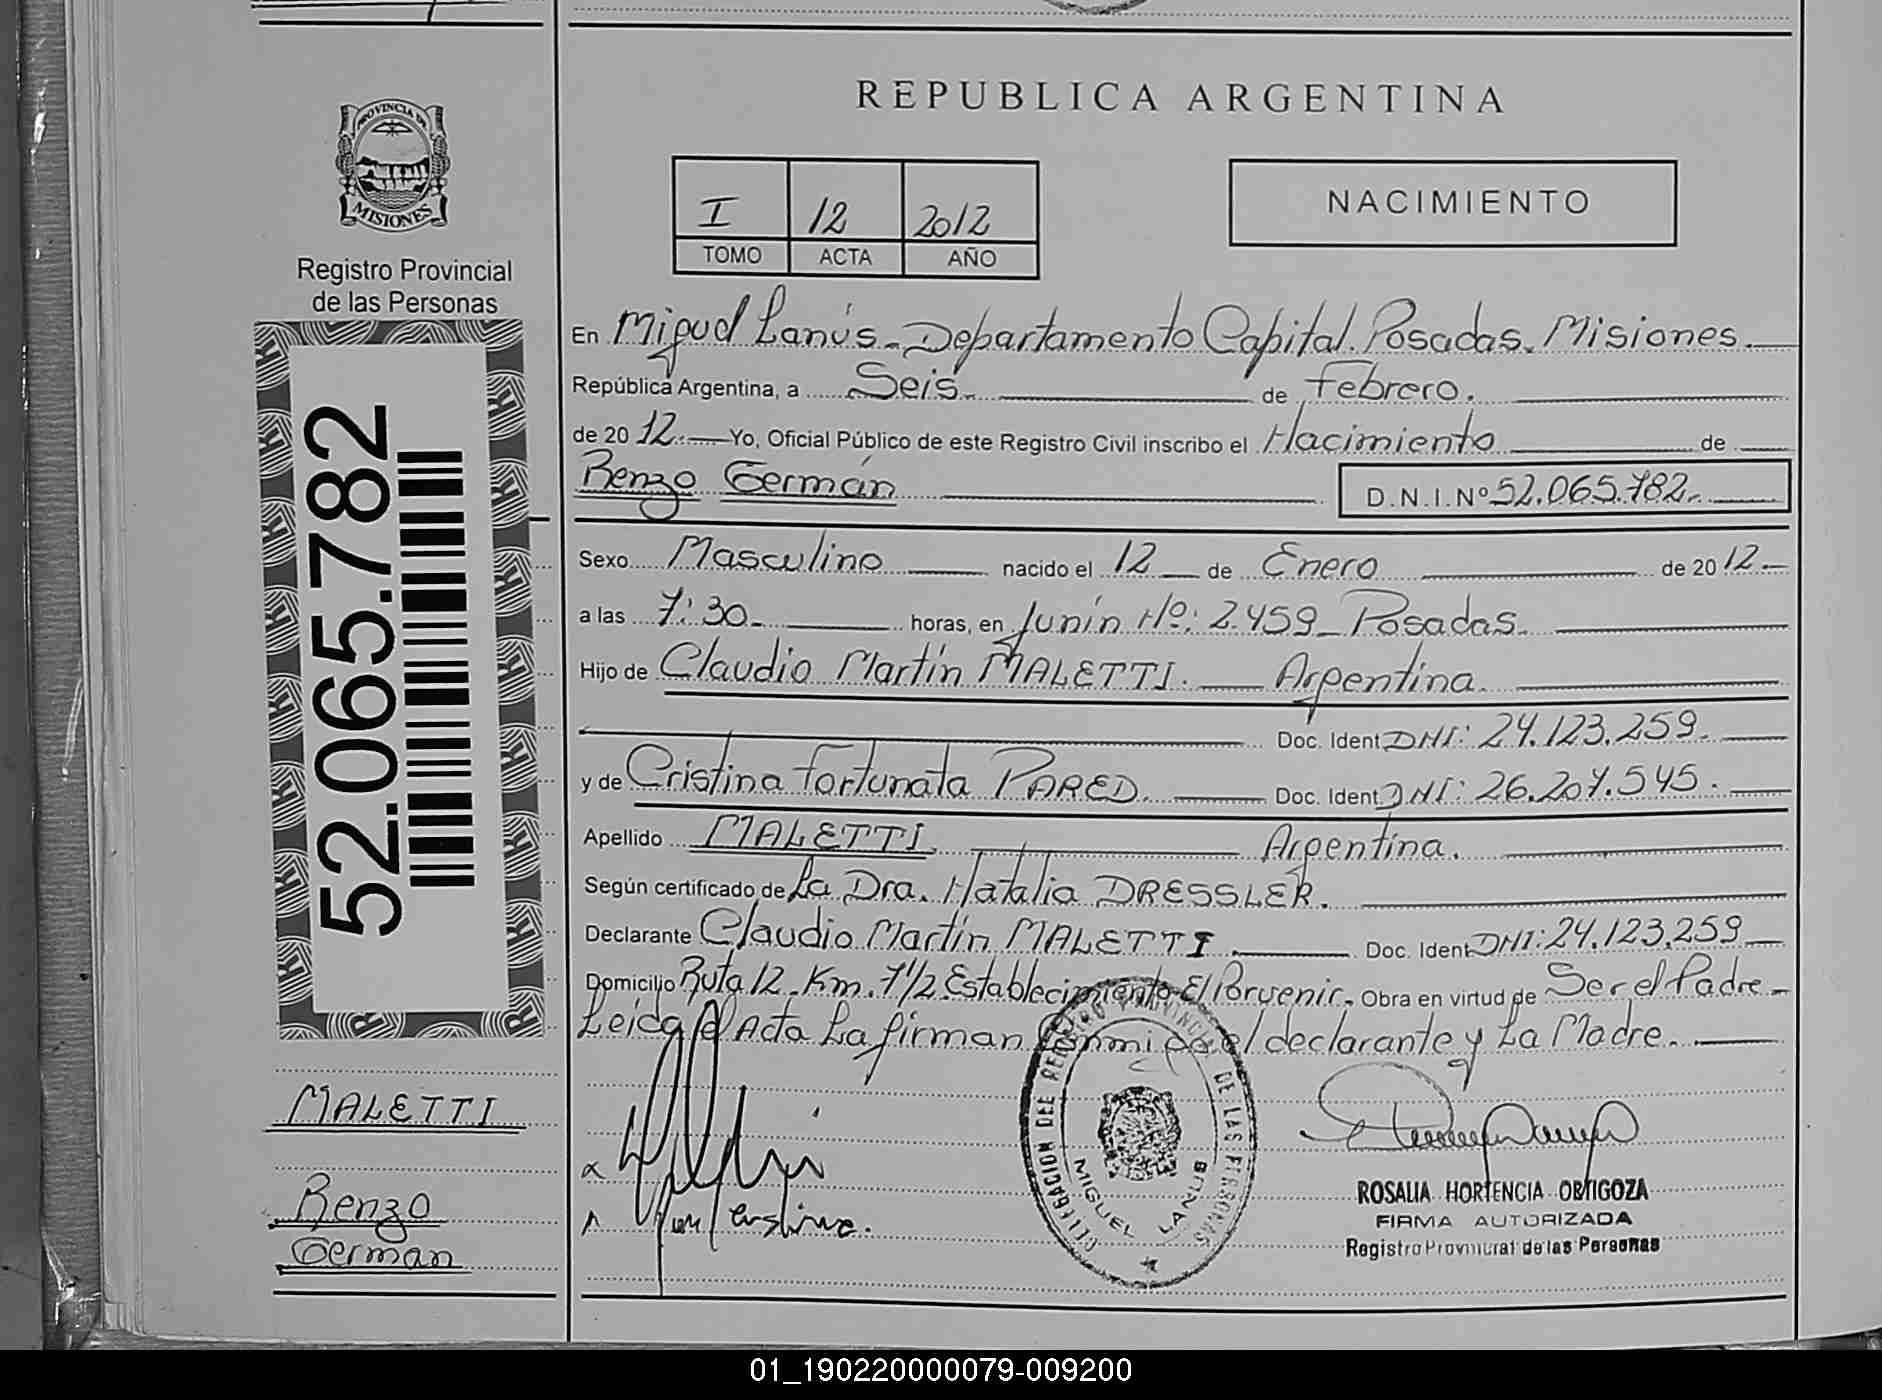 PROVINCIA DE
MISIONES
Registro Provincial
de las Personas
52.065.782
MALETTI
Renzo
German
REPUBLICA ARGENTINA
I 12 2012
TOMO ACTA AÑO
NACIMIENTO
En Miguel Lanús - Departamento Capital. Posadas. Misiones.
República Argentina, a Seis. de Febrero.
de 20 12. Yo, Oficial Público de este Registro Civil inscribo el Nacimiento de
Renzo Germán D.N.I.Nº 52.065.782.
Sexo Masculino nacido el 12 de Enero de 20 12.
a las 7:30 horas, en Junín Nº: 2.459 - Posadas.
Hijo de Claudio Martín MALETTI. Argentina.
Doc. Ident DNI: 24.123.259.
y de Cristina Fortunata PARED. Doc. Ident DNI: 26.207.545.
Apellido MALETTI. Argentina.
Según certificado de La Dra. Natalia DRESSLER.
Declarante Claudio Martín MALETTI. Doc. Ident DNI: 24.123.259
Domicilio Ruta 12. Km. 7 1/2. Establecimiento El Porvenir. Obra en virtud de Ser el Padre.
Leida el Acta La firman conmigo el declarante y La Madre.
DELEGACION DEL REGISTRO PROVINCIAL DE LAS PERSONAS
MIGUEL LANUS
ROSALIA HORTENCIA ORTIGOZA
FIRMA AUTORIZADA
Registro Provincial de las Personas
01_190220000079-009200